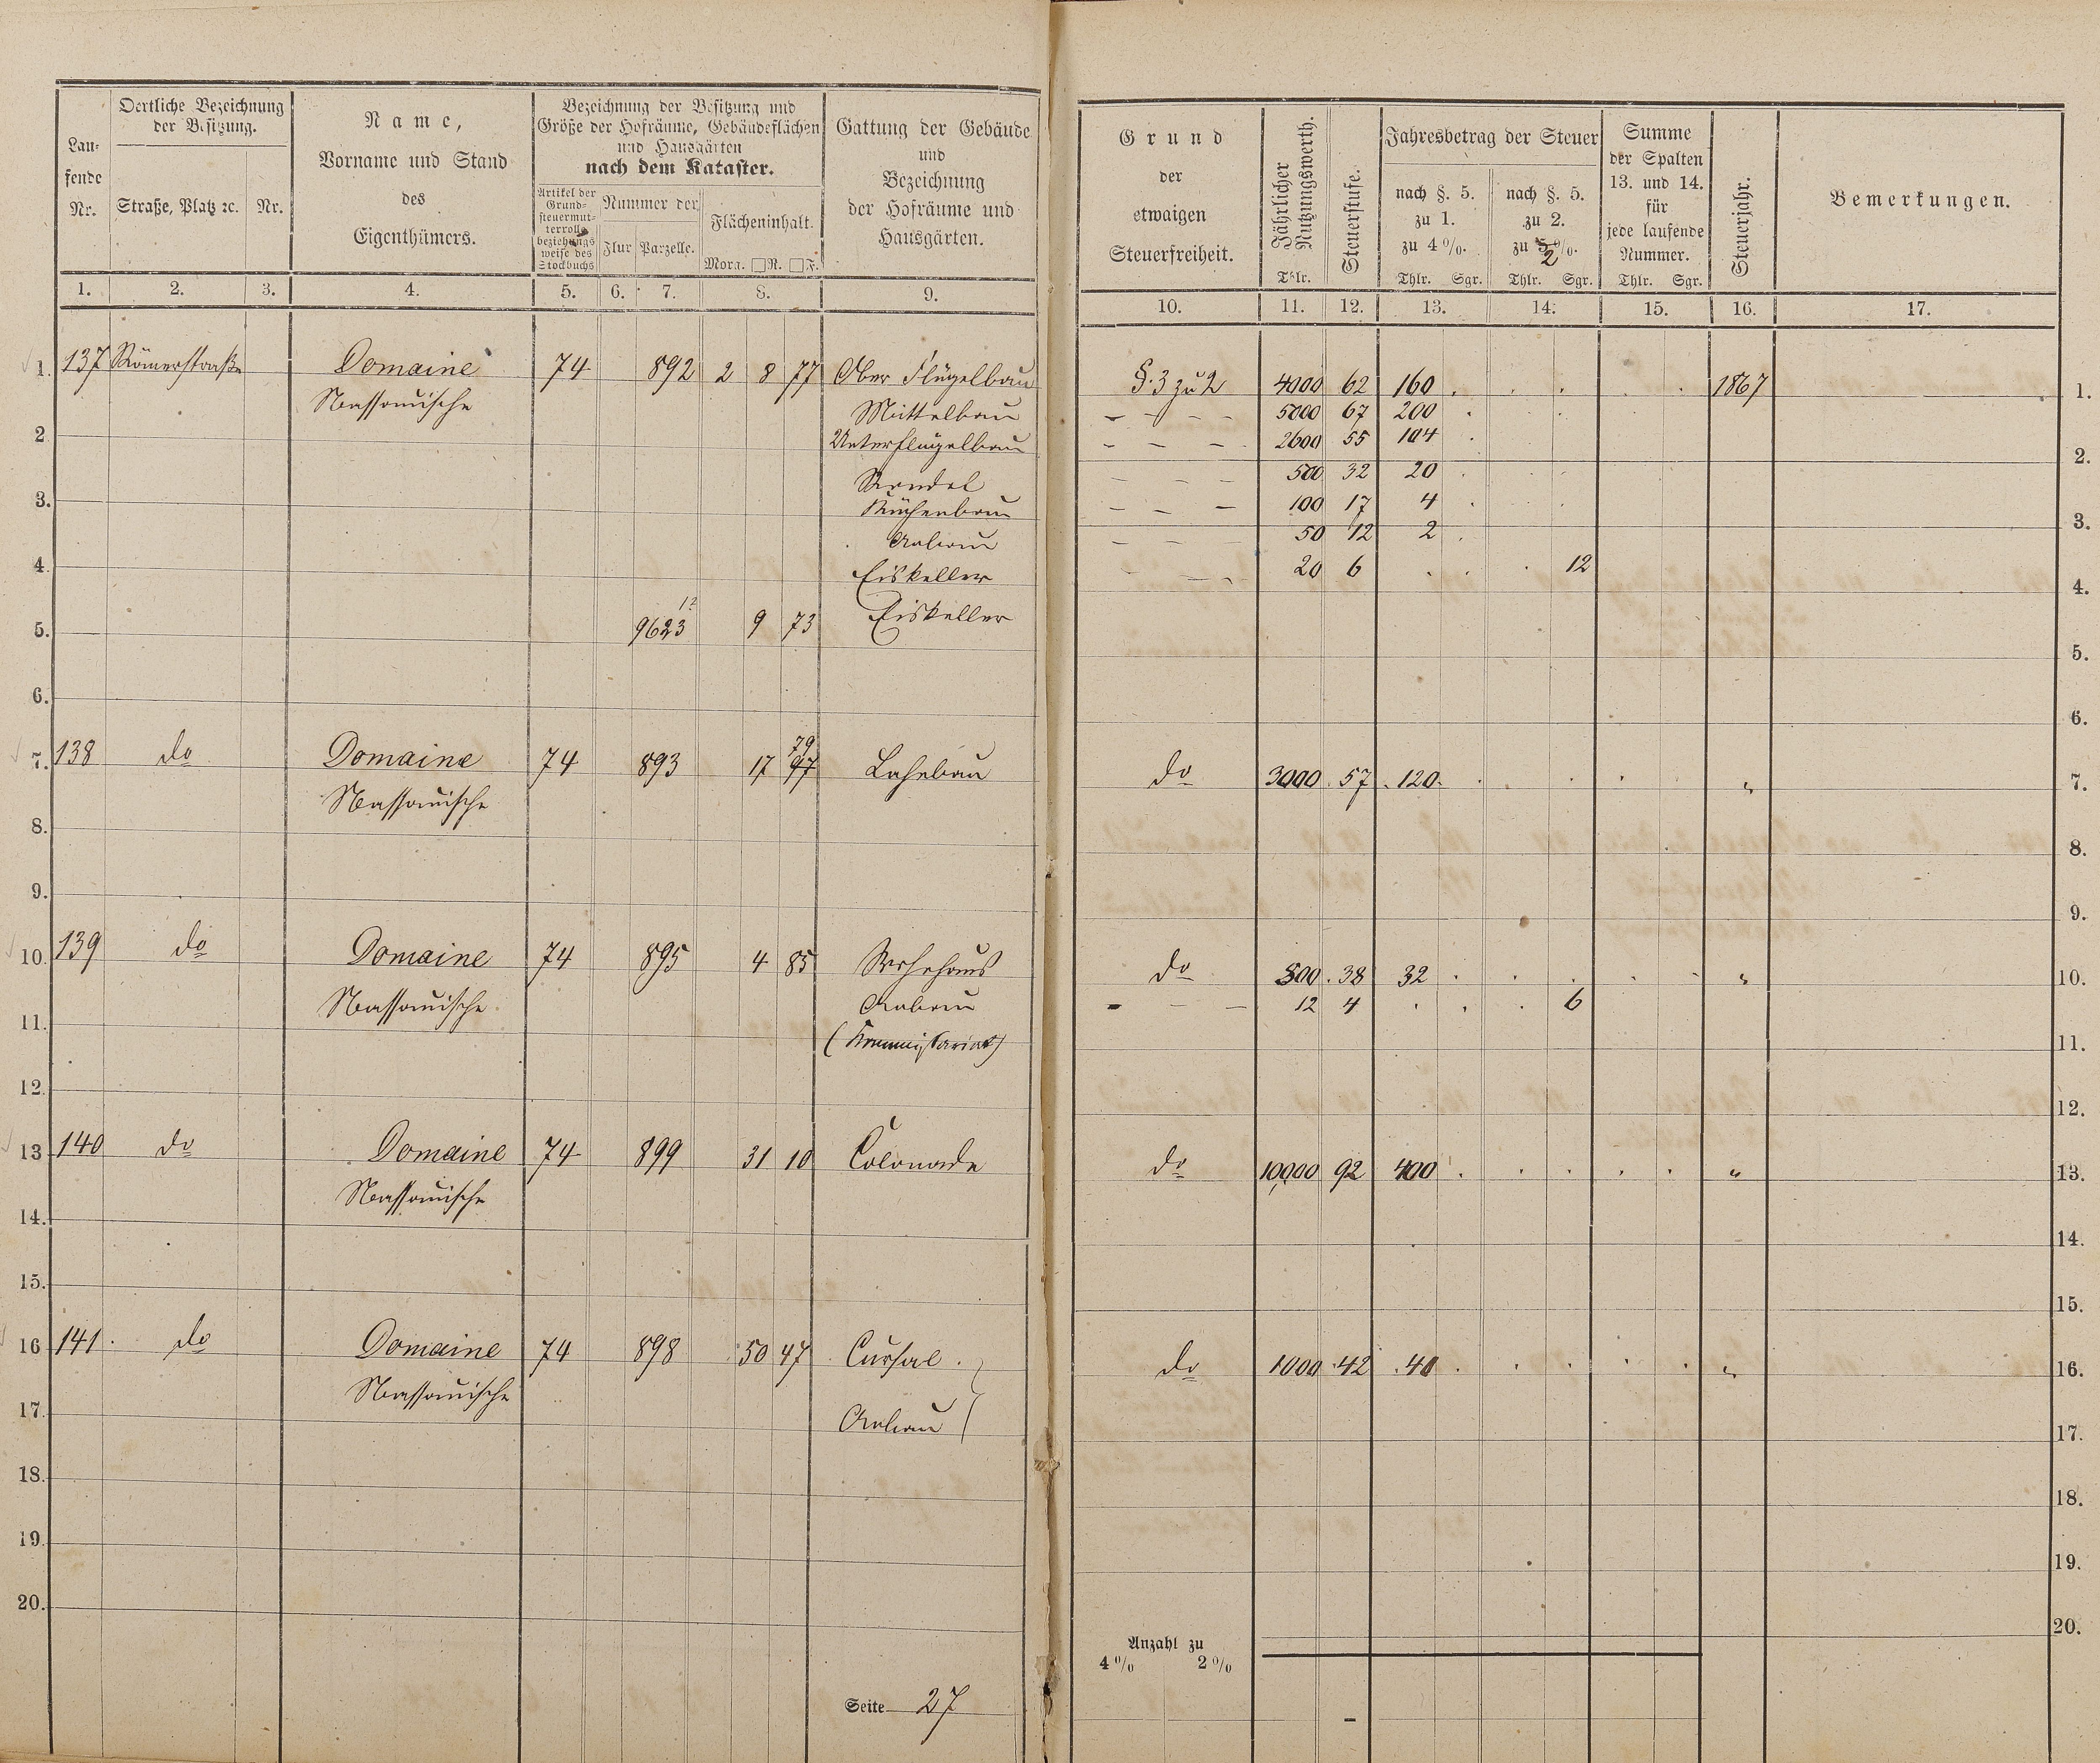 Lau-
fende
Nr.
Oertliche Bezeichnung
der Besitzung.
Straße, Platz ꝛc. Nr.
Name,
Vorname und Stand
des
Eigenthümers.
Bezeichnung der Besitzung und
Größe der Hofräume, Gebäudeflächen
und Hausgärten
nach dem Kataster.
Artikel der
Grund-
steuermut-
terrolle
beziehungs
weise des
Stockbuchs
Nummer der
Flur Parzelle.
Flächeninhalt.
Morg. □R. □F.
Gattung der Gebäude
und
Bezeichnung
der Hofräume und
Hausgärten.
1. 2. 3. 4. 5. 6. 7. 8. 9.
1. 137 Römerstraße Domaine 74 892 2 8 77 Ober Flügelbau
Nassauische Mittelbau
2. Unterflügelbau
Rondel
3. Küchenbau
Anbau
4. Eiskeller
12
5. 9623 9 73 Eiskeller
6.
79
7. 138 do Domaine 74 893 17 97 Lahnbau
Nassauische
8.
9.
10. 139 do Domaine 74 895 4 85 Wohnhaus
Nassauische Anbau
11. (Kommissariat)
12.
13 140 do Domaine 74 899 31 10 Colonade
Nassauische
14.
15.
16 141. do Domaine 74 898 50 47 Cursal.
Nassauische
17. Anbau
18.
19.
20.
Seite 27
Grund
der
etwaigen
Steuerfreiheit.
Jährlicher
Nutzungswerth.
Thlr.
Steuerstufe.
Jahresbetrag der Steuer
nach §. 5.
zu 1.
zu 4 %.
Thlr. Sgr.
nach §. 5.
zu 2.
zu 5 %.
2
Thlr. Sgr.
Summe
der Spalten
13. und 14.
für
jede laufende
Nummer.
Thlr. Sgr.
Steuerjahr.
Bemerkungen.
10. 11. 12. 13. 14. 15. 16. 17.
§. 3 zu 2 4000 62 160 1867 1.
- - - - 5000 67 200
- - - 2600 55 104
2.
- - - 500 32 20
- - - 100 17 4
3.
- - - 50 12 2
- - - 20 6 12
4.
5.
6.
do 3000 57 120 " 7.
8.
9.
do 800 38 32 " 10.
- - - 12 4 6
11.
12.
do 10,000 92 400 " 13.
14.
15.
do 1000 42 40 " 16.
17.
18.
19.
20.
Anzahl zu
4 % 2 %
-